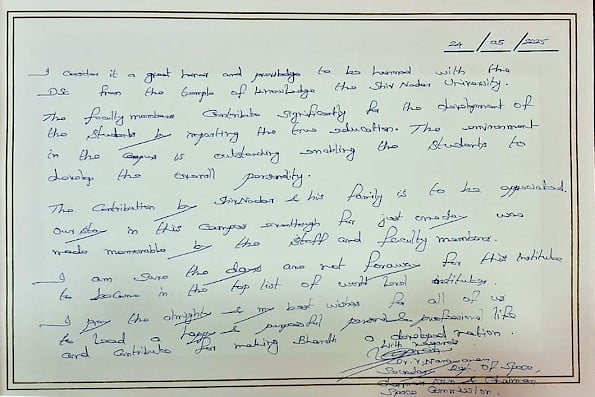 24/05/2025
I consider it a great honor and previledge to be honored with the
D.Sc from the temple of knowledge the Shiv Nadar University.
The faculty members Contribute Significantly for the development of
the Students by imparting the true education. The environment
in the Campus is outstanding enabling the Students to
develop the overall personality.
The Contribution by Shiv Nadar & his family is to be appreciated.
Our stay in this Campus eventhough for just oneday was
made memorable by the Staff and faculty members.
I am Sure the days are not faraway for this Institute
to become in the top list of world level institutes.
I pray the almighty & my best wishes for all of us
to lead a happy & purposeful personal & professional life
and Contribute for making Bharath a developed nation.
With regards
Dr. V. Narayanan
Secretary Dept. Of Space,
Chairman ISRO & Chairman
Space Commission.